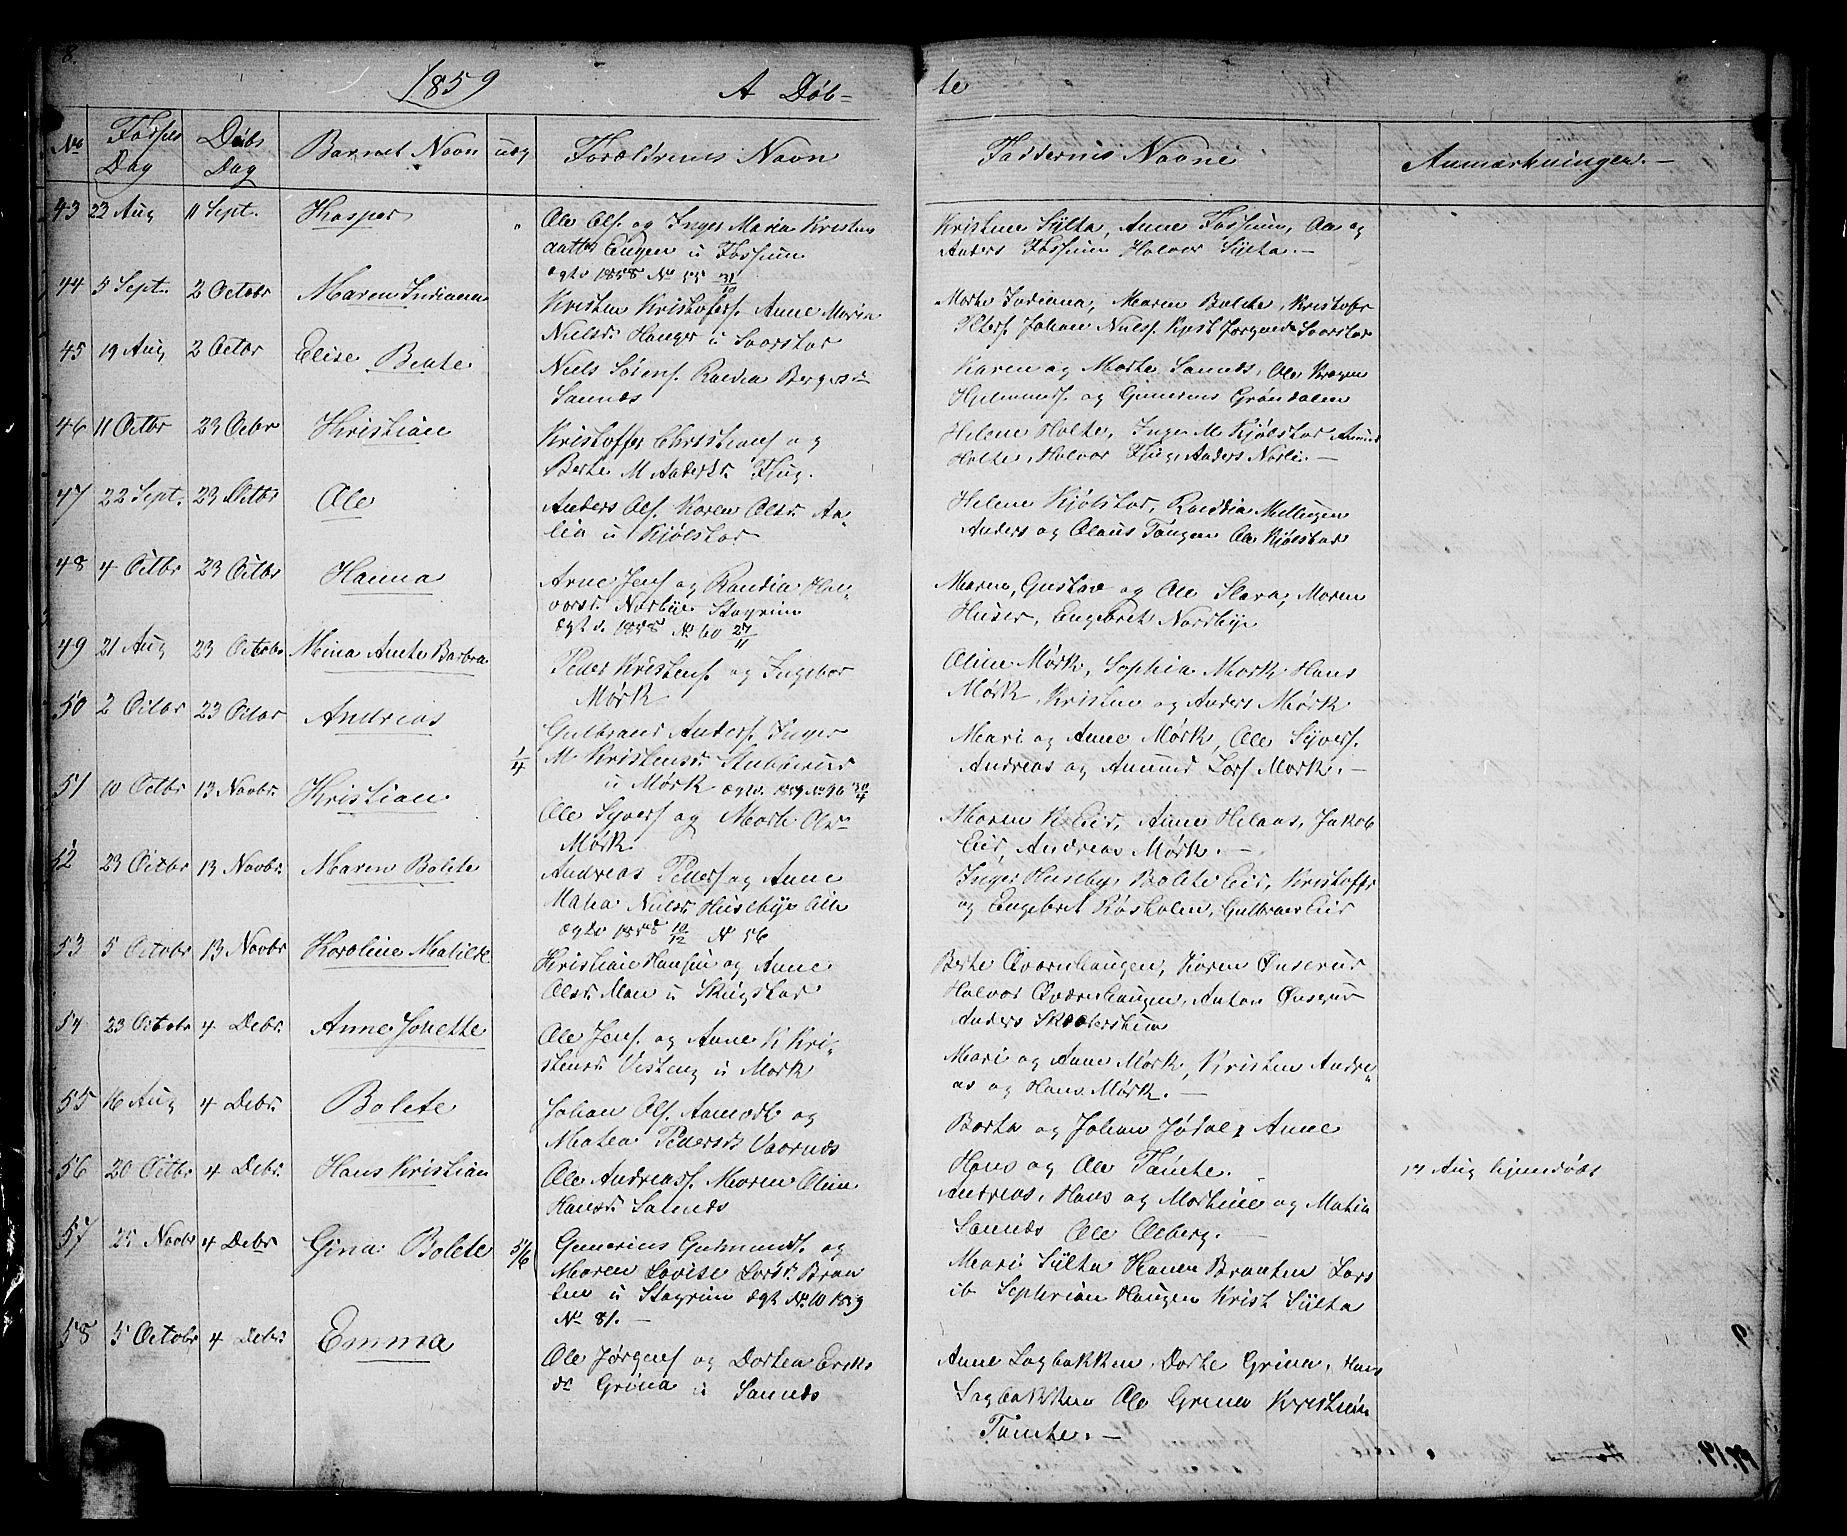 8.
1859 A Døb- te
No Fødsels Dag Døbs Dag Barnets Navn uæg Forældrenes Navn Faddernes Navne Anmærkninger. -
43 22 Aug 11 Sept. Kasper " Ole Ols. og Inger Maria Kristens
datter Engen u Fossum
ægtv 1858 No 55 31/10
Kristine Sylta, Anne Fossum, Ole og
Anders Fossum Halvor Sylta. -
44 5 Sept. 2 Octobr Maren Indiana Kristen Kristofers. Anne Maria
Nielsd. Hanger u
Marte Indiana, Maren Bolete, Kristofr
Peters. Johan Niels.
45 19 Aug 2 Octbr Elise Beate Niels Sørens. Randia Bergersd
Sannes
Karen og Marte Sannes, Ole
og Gunerius Grøndalen
46 11 Octbr 23 Octbr Kristian Kristoffer Christians og
Berte M Andersd. Fjug.
Helene Holte, Inger M Kjølstad Amund
Holte, Halvor Fjug, Anders Norli. -
47 22 Sept. 23 Octbr Ole Anders Ols. Karen Olsd. Aa-
lia u Kjølstad
Helene Kjølstad, Randia Mellingen
Anders og Olaus Tangen Ole Kjølstad
48 4 Octbr 23 Octbr Hanna Arne Jens og Randia Hal-
vorsd. Norbye Stagrim
Ægtv. 1858 No 60 27/11
Maren, Gustav og Ole Slara, Maren
Huser, Engebret Nordbye
49 21 Aug 23 Octobr Mina Anete Barbra Peder Kristens og Ingebor
Mørk
Oline Mørk, Sophia Mork Hans
Mørk Kristen og Anders Mørk
50 2 Octbr 23 Octbr Andreas 1/4 Gulbrand Anders. Inger
M Kristensd. Stubberud
u Mørk ægtv. 1859 No 96 30/4
Mari og Anne Mørk, Ole Syvers.
Andreas og Amund Lars Mørk. -
51 10 Octbr 13 Novbr. Kristian Ole Syvers og Marte Olsd
Mørk
Maren K Eid, Anne Helaas, Jakob
Eid, Andreas Mørk. -
52 23 Octbr 13 Novbr. Maren Bolete Andreas Peders og Anne
Matea Nielsd Huseby Eid
ægtv 1858 10/12 No 56
Inger Huseby, Bolete Eid, Kristoffr
og Engebret Røsholen, Gulbrand Eid
53 5 Octobr 13 Novbr Karoline Matilde Kristian Hansen og Anne
Olsd. Moen u Skugstad
Berte Qværnhaugen, Karen Ønserud
Halvor Qværnhaugen, Anton Ønserud
Anders
54 23 Octobr 4 Debr. Anne Jonette Ole Jens. og Anne K Kri-
stensd. Vesteng u Mørk
Mari og Anne Mørk, Kristen Andre-
as og Hans Mørk. -
55 16 Aug 4 Debr. Bolete Johan Ols. Aamodt og
Matea Pedersd Vaarnes
Berta og Johan Jødal, Anne
Hans og Ole Tømte.
56 20 Octbr 4 Debr. Hans Kristian Ole Andreass. Maren Olin
Hansd. Sannes
Andreas, Hans og Martine og Matia
Sannes Ole Aaberg. -
17 Aug hjemdøbt
57 25 Novbr 4 Debr Gina Bolete 5/6 Gunerius Gudmunds. og
Maren Lovise Larsd. Braa-
ten u Stagrim ægt No. 10 1859
No 81. -
Mari Sylta Hanna Braaten Lars
ib Sephrian Haugen Krist Sylta
58 5 Octobr 4 Debr. Emma Ole Jørgens og Dortea Eriks
dr Grina u Sannes
Anne Sagbakken. Dorte Grina, Hans
Sagbakken Ole Grina Kristian
Tømte. -